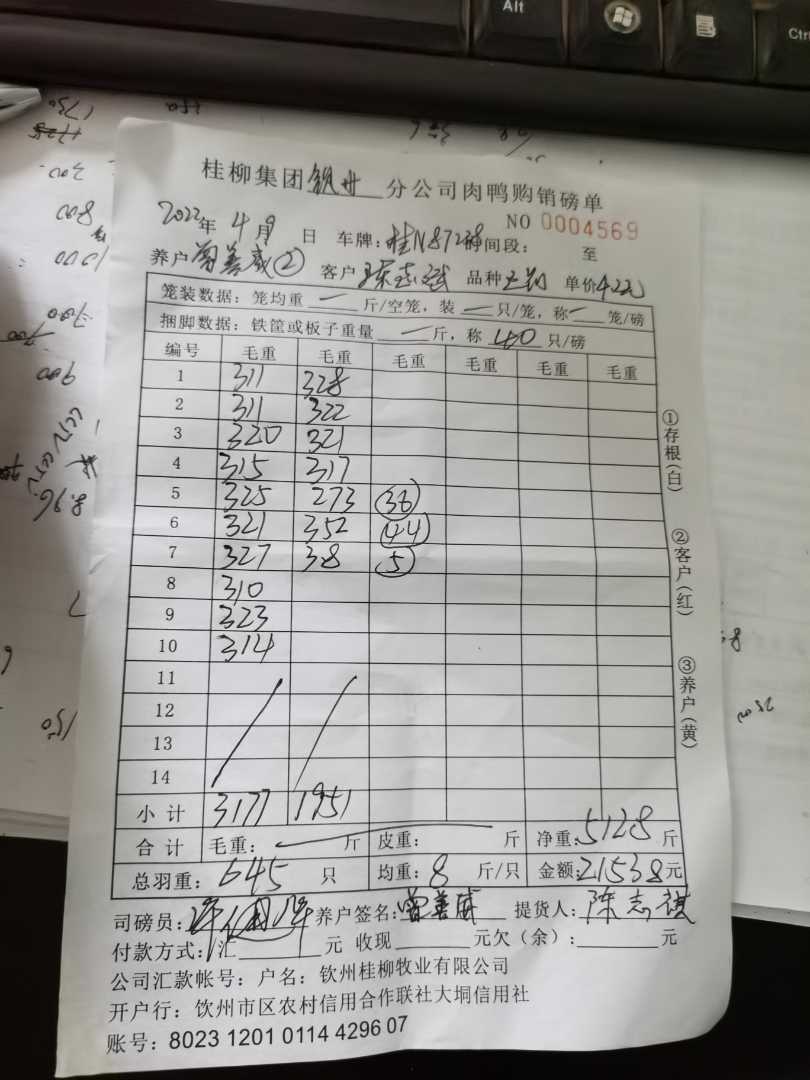 Alt
Ctrl
桂柳集团钦州分公司肉鸭购销磅单
NO 0004569
2022年 4月9日 车牌:桂N87 时间段: 至
养户曾善威② 客户陈志 品种 单价4.2元
笼装数据:笼均重 一 斤/空笼,装 一 只/笼,称 一 笼/磅
捆脚数据:铁筐或板子重量 一 斤,称 40 只/磅
编号 毛重 毛重 毛重 毛重 毛重 毛重
1 311 328
2 311 322
3 320 321
4 315 317
5 325 273 36
6 321 352 44
7 327 38 5
8 310
9 323
10 314
11
12
13
14
小计 3177 1951
合计 毛重: 斤 皮重: 斤 净重:5128 斤
总羽重:645 只 均重:8 斤/只 金额:21538元
司磅员: 养户签名:曾善威 提货人:陈志祺
付款方式:汇 元 收现 元欠(余): 元
公司汇款帐号:户名:钦州桂柳牧业有限公司
开户行:饮州市区农村信用合作联社大垌信用社
账号:8023 1201 0114 4296 07
①存根(白)
②客户(红)
③养户(黄)